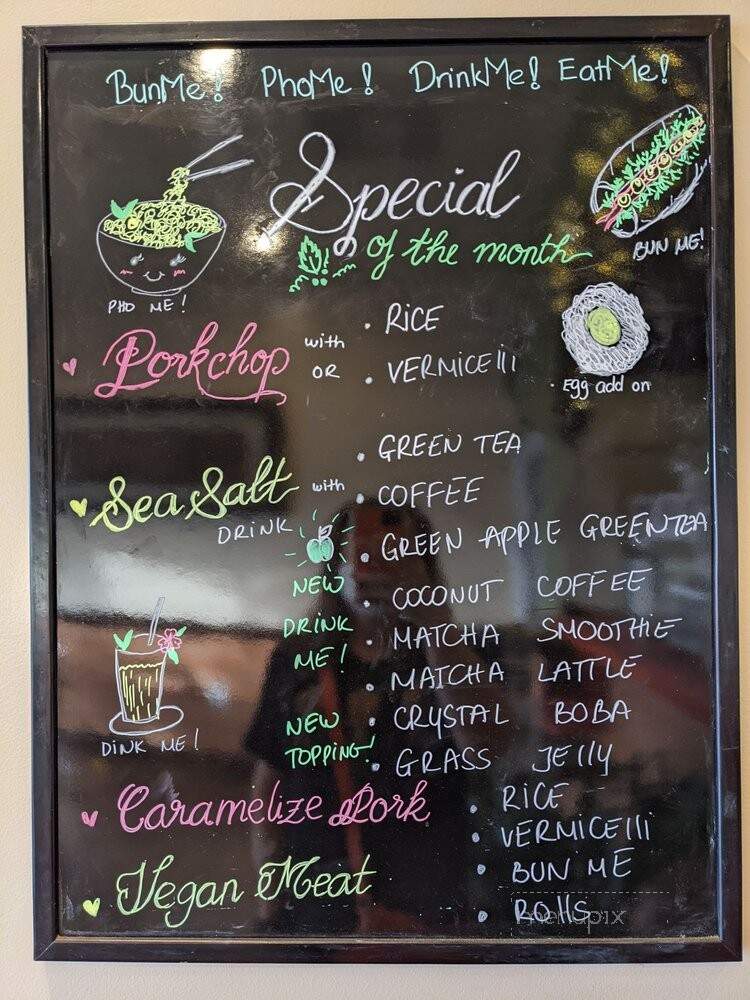 BunMe! PhoMe! DrinkMe! EatMe!
Special
of the month
PHO ME!
BUN ME!
Porkchop with OR
• RiCE
• VERMICElli
Egg add on
Sea Salt with
DRINK
• GREEN TEA
• COFFEE
• GREEN APPLE GREENTEA
NEW
DRINK
ME!
• COCONUT COFFEE
• MATCHA SMOOTHiE
• MATCHA LATTLE
DINK ME!
NEW
TOPPING!
• CRYSTAL BOBA
• GRASS JElly
Caramelize Pork
Vegan Meat
• RICE
• VERMICElli
• BUN ME
• ROllS
menupix